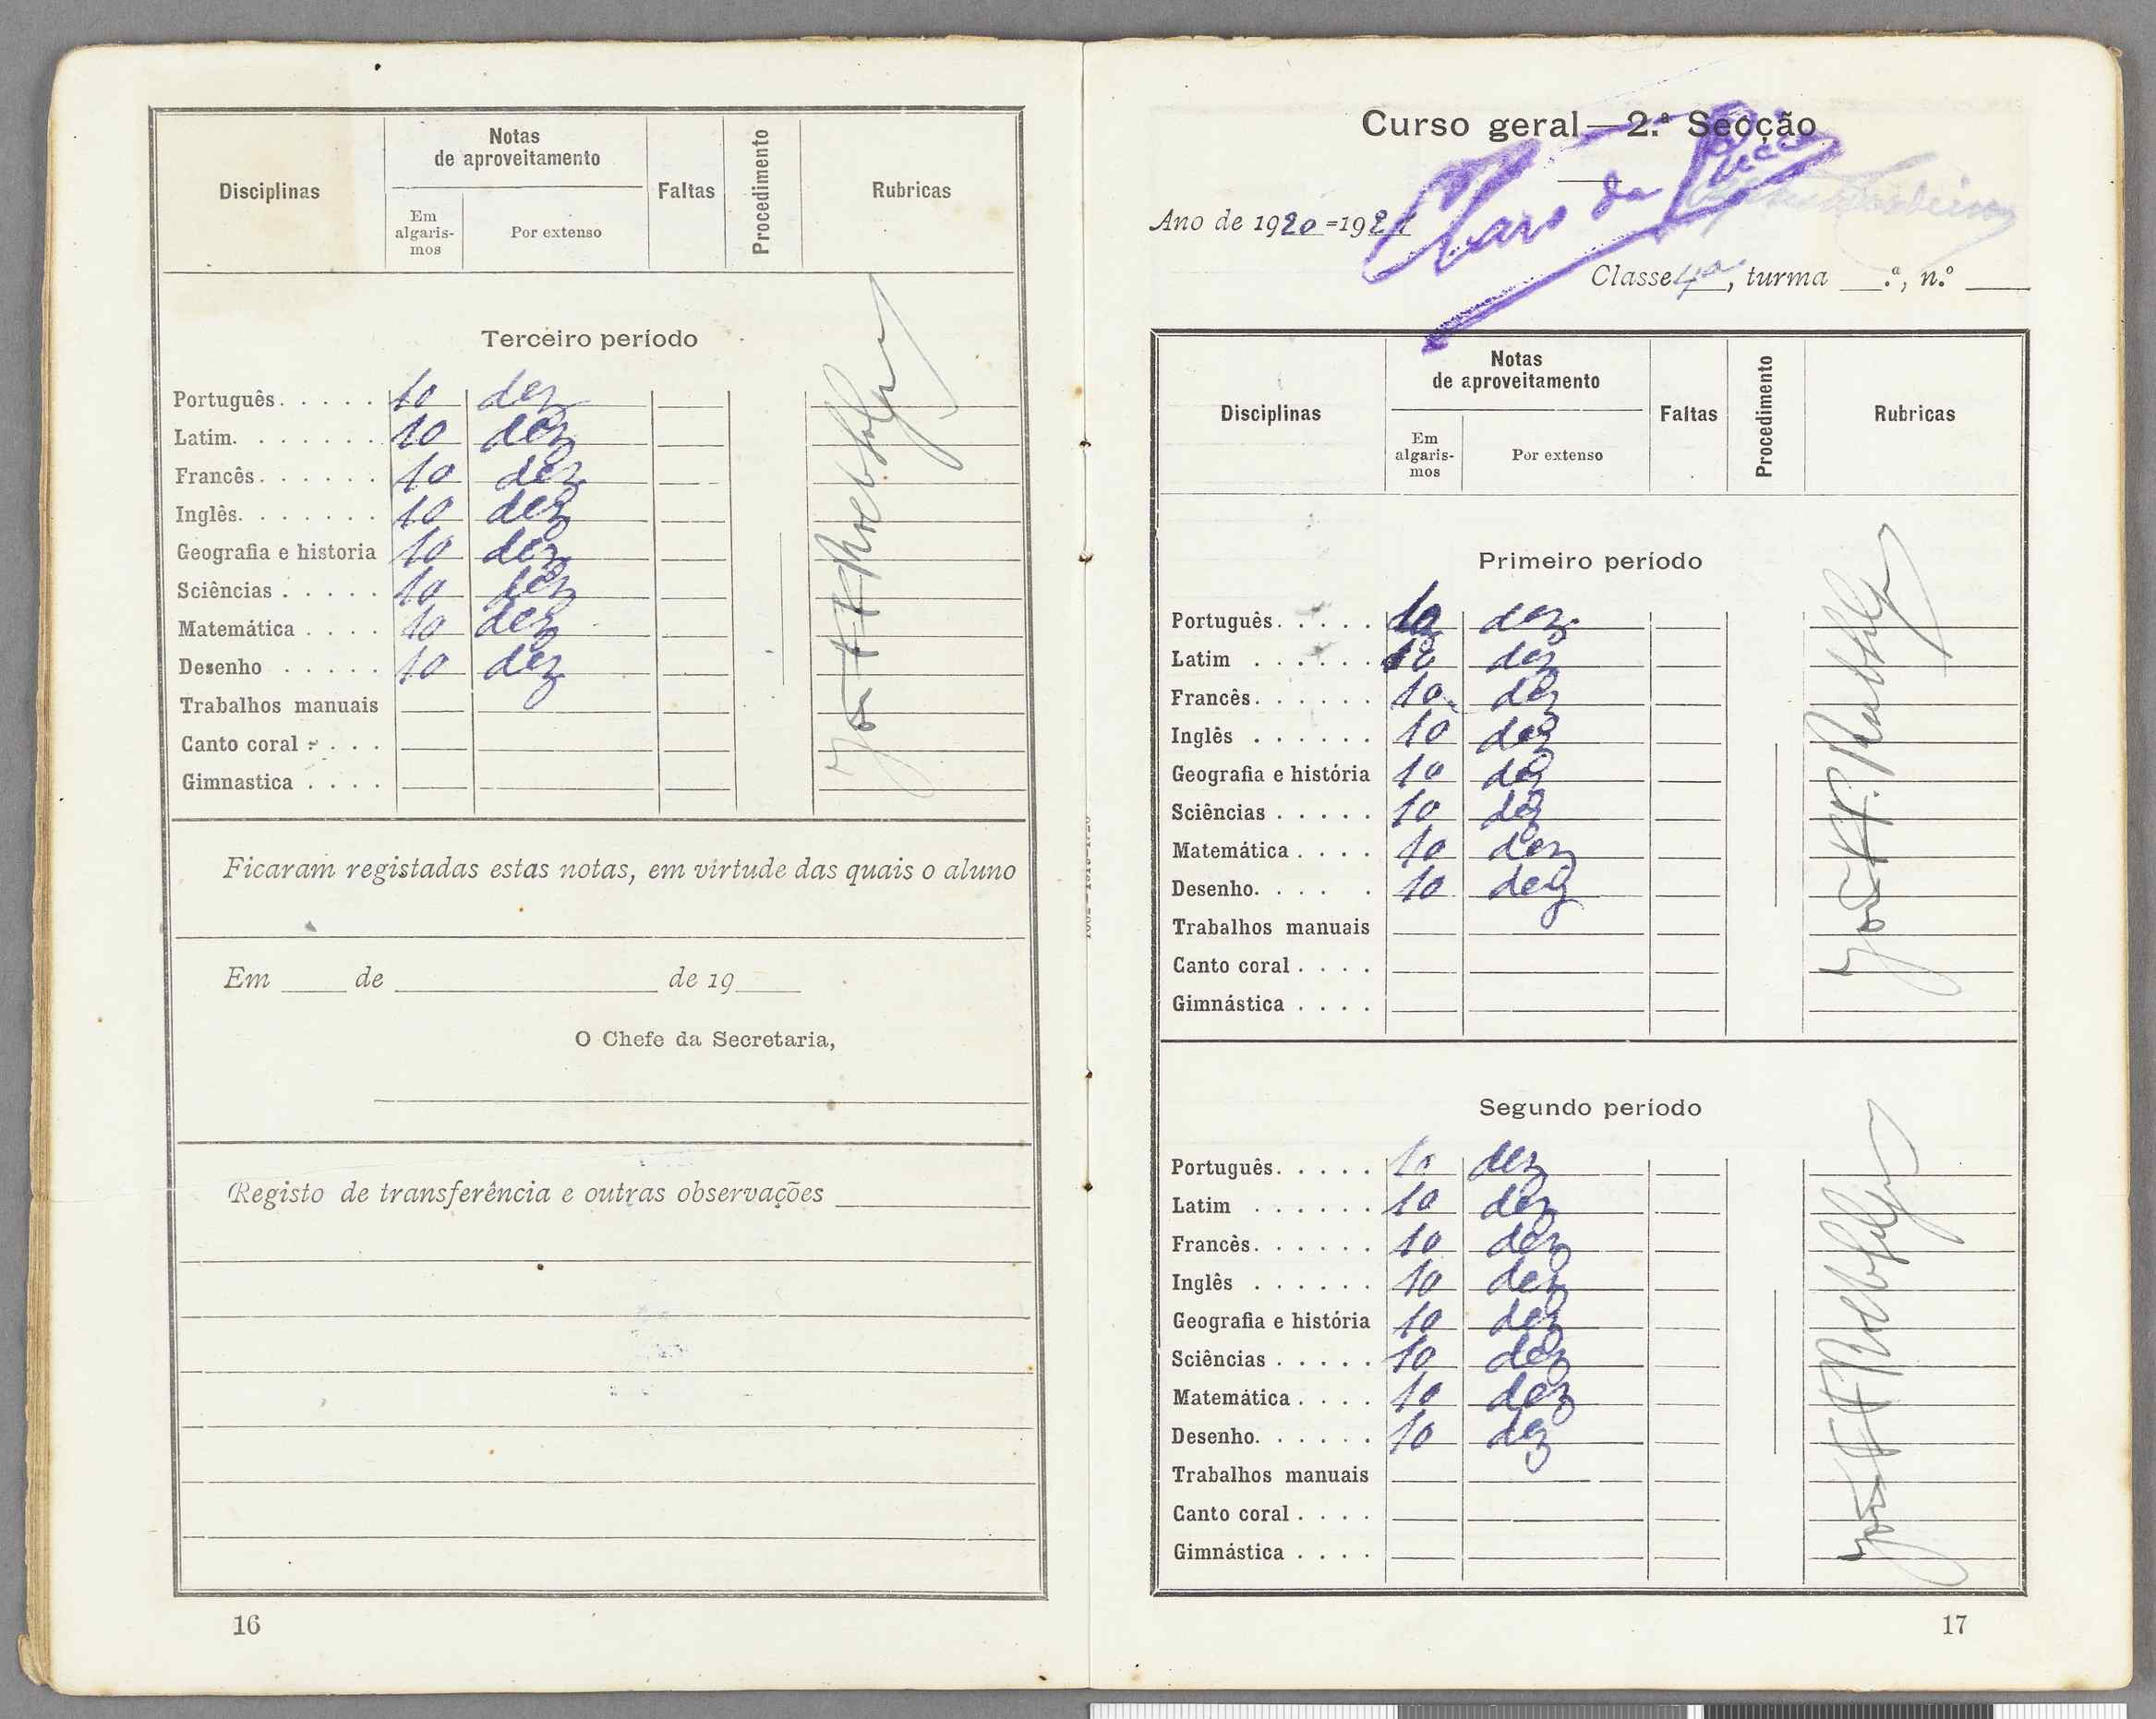 Disciplinas
Notas
de aproveitamento
Em
algaris-
mos
Por extenso
Faltas
Procedimento
Rubricas
Terceiro período
Português. . . . . 10 dez
Latim. . . . . . . 10 dez
Francês. . . . . . 10 dez
Inglês. . . . . . . 10 dez
Geografia e historia 10 dez
Sciências . . . . . 10 dez
Matemática . . . . 10 dez
Desenho . . . . . 10 dez
Trabalhos manuais
Canto coral . . . .
Gimnastica . . . .
Ficaram registadas estas notas, em virtude das quais o aluno
Em ____ de ____ de 19____
O Chefe da Secretaria,
Registo de transferência e outras observações
16
Curso geral—2.ª Secção
Ano de 1920=1921
Classe 4ª, turma __.ª, n.º ____
Disciplinas
Notas
de aproveitamento
Em
algaris-
mos
Por extenso
Faltas
Procedimento
Rubricas
Primeiro período
Português. . . . . 10 dez
Latim . . . . . . 10 dez
Francês. . . . . . 10 dez
Inglês . . . . . . 10 dez
Geografia e história 10 dez
Sciências . . . . . 10 dez
Matemática . . . . 10 dez
Desenho. . . . . 10 dez
Trabalhos manuais
Canto coral . . . .
Gimnástica . . . .
Segundo período
Português. . . . . 10 dez
Latim . . . . . . 10 dez
Francês. . . . . . 10 dez
Inglês . . . . . . 10 dez
Geografia e história 10 dez
Sciências . . . . . 10 dez
Matemática . . . . 10 dez
Desenho. . . . . . 10 dez
Trabalhos manuais
Canto coral . . . .
Gimnástica . . . .
17